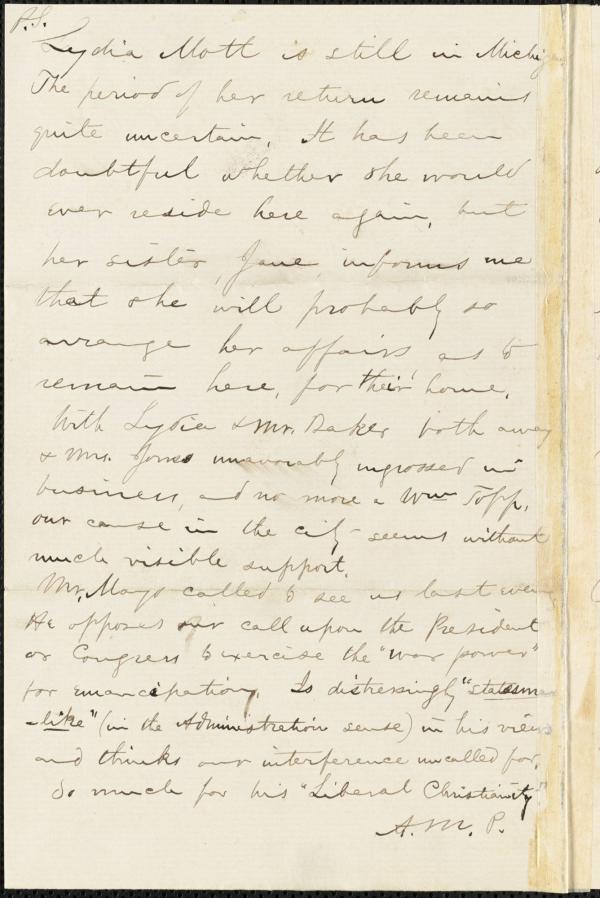 P.S.
Lydia Mott is still in Michigan
The period of her return remains
quite uncertain. It has been
doubtful whether she would
ever reside here again, but
her sister, Jane, informs me
that she will probably so
arrange her affairs as to
remain here, for their home.
With Lydia & Mr. Baker both away
& Mrs. Jones unavoidably ingrossed in
business, and no more a Wm Topp,
our cause in the city seems without
much visible support.
Mr. Mayo called to see us last even
He opposes our call upon the President
or Congress to exercise the "war power"
for emancipation. Is distressingly "statesman
-like" (in the Administration sense) in his views
and thinks our interference uncalled for.
So much for his "Liberal Christianity"
A. M. P.